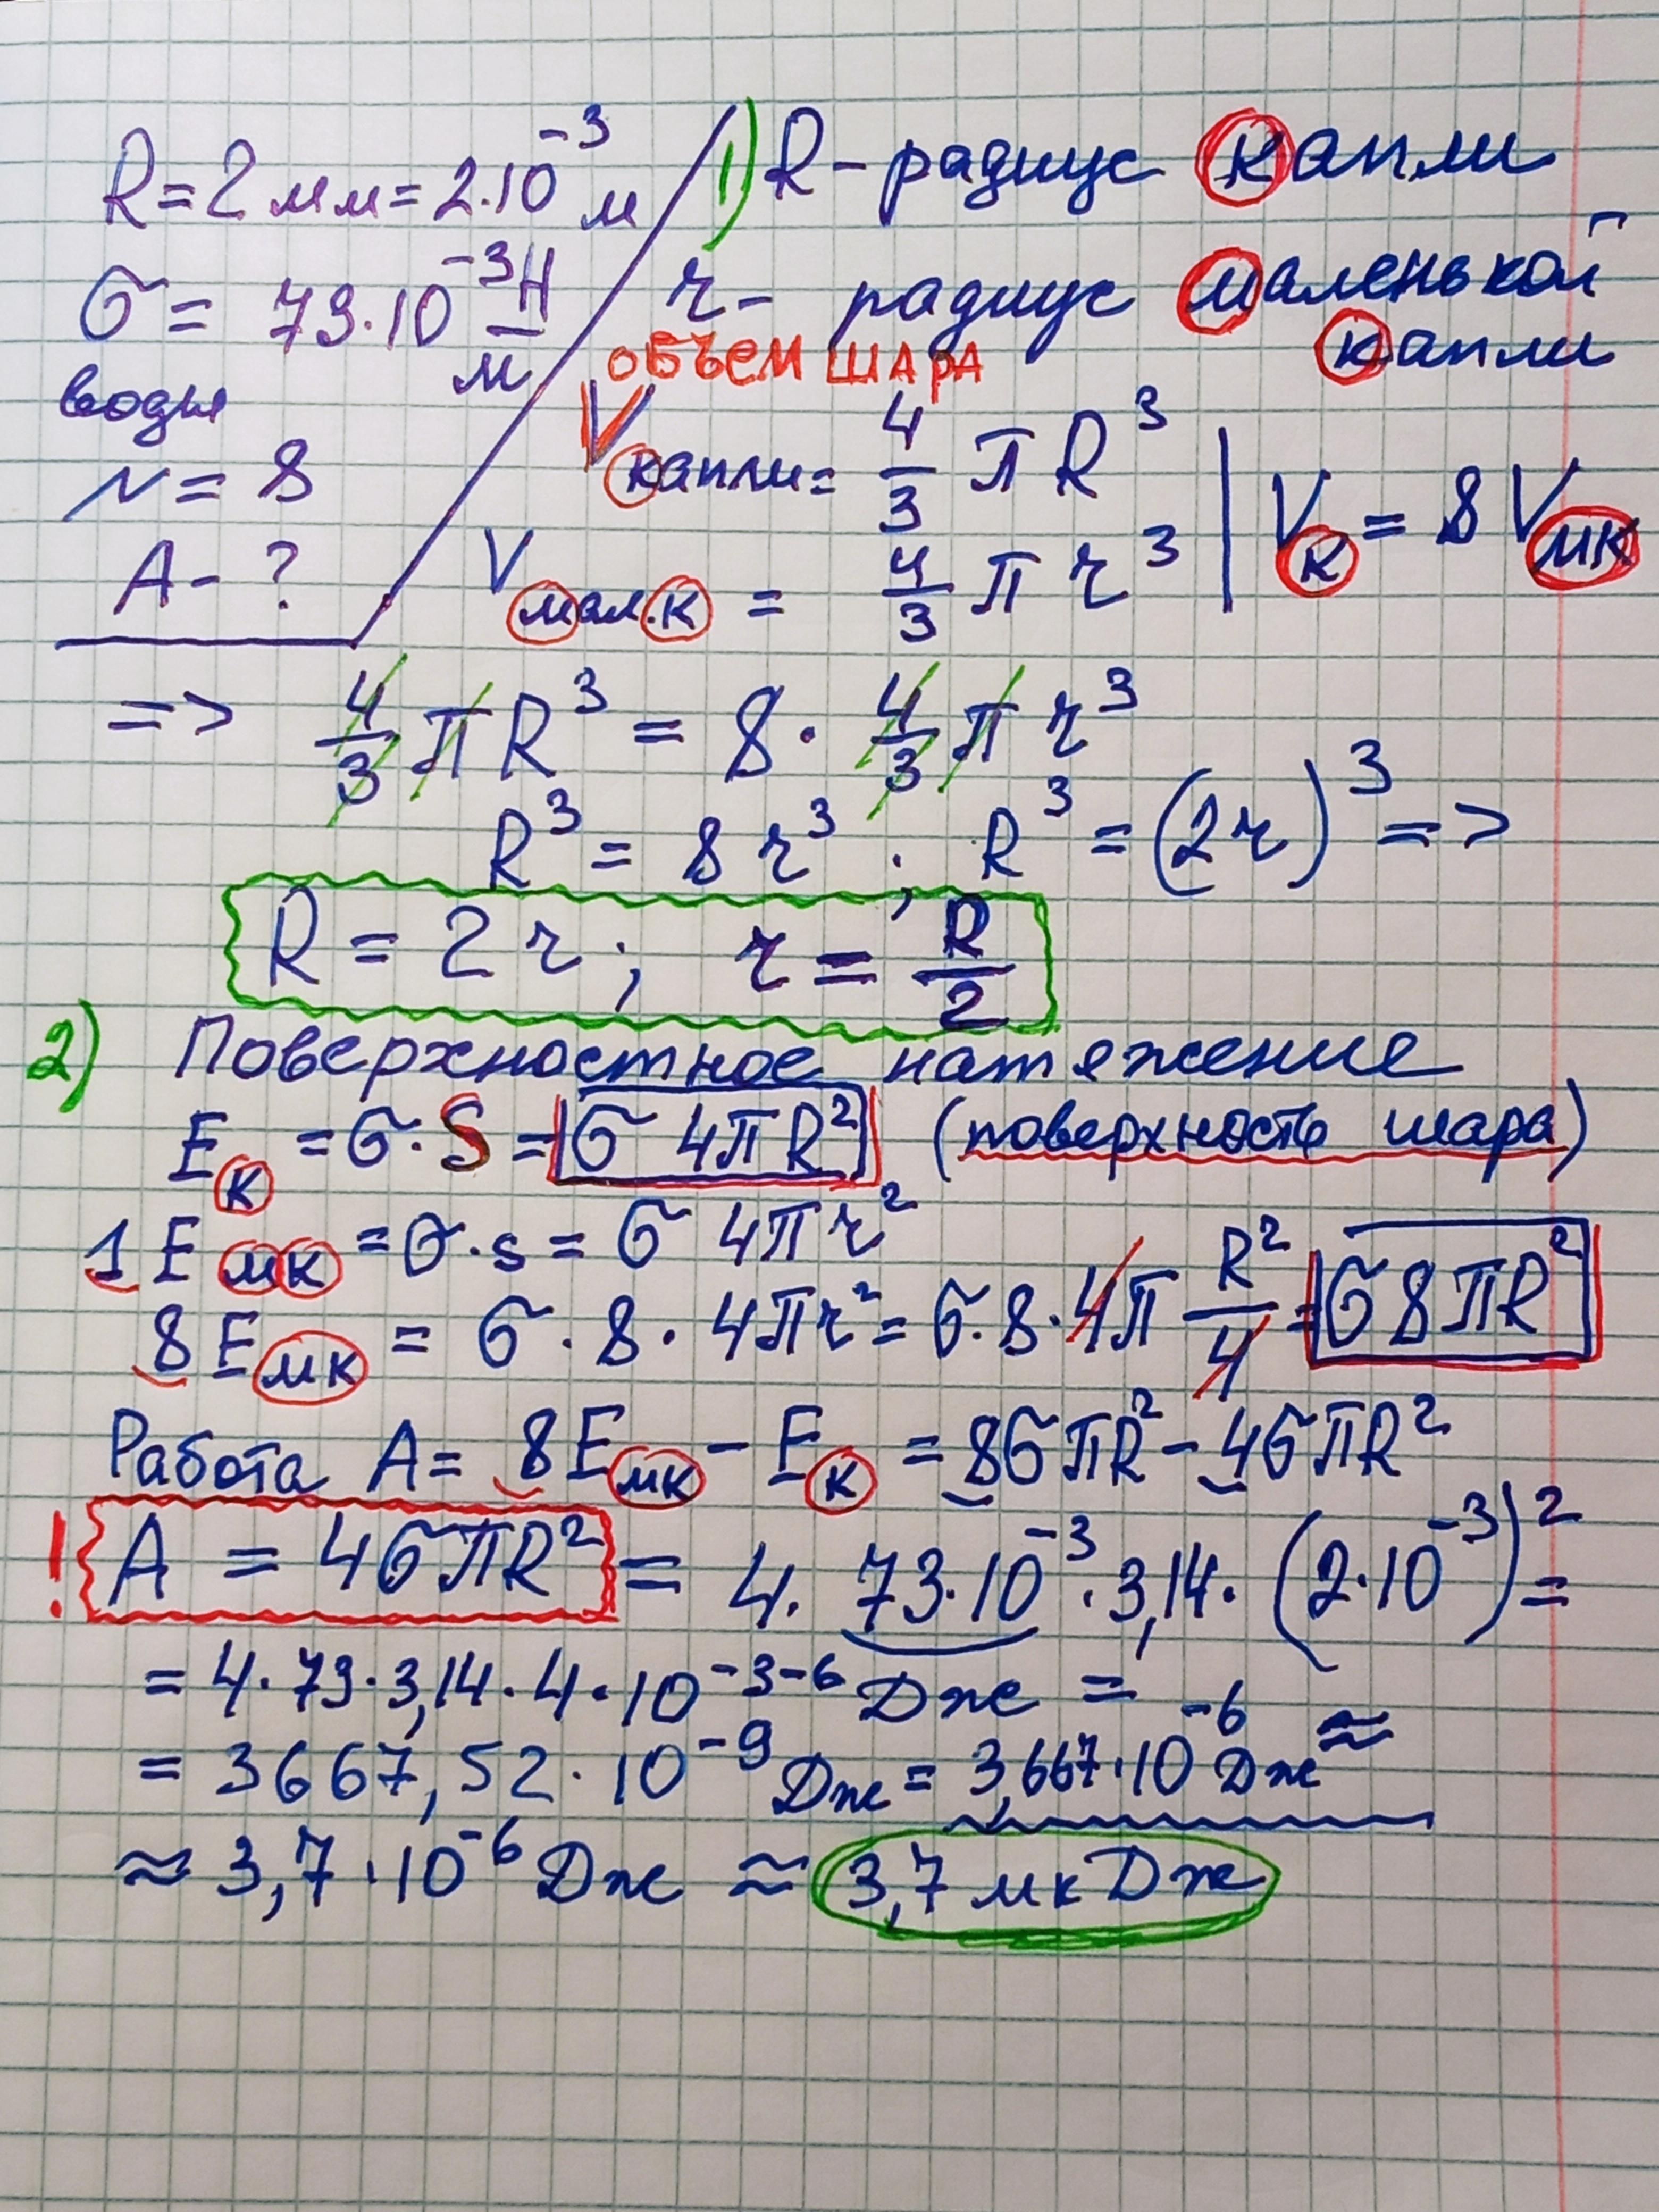 R = 2 мм = 2·10⁻³ м
σ = 73·10⁻³ Н/м
воды
N = 8
A - ?
1) R - радиус капли
r - радиус маленькой
капли
ОБЪЕМ ШАРА
Vкапли = 4/3 π R³
Vмал.к = 4/3 π r³ | Vк = 8 Vмк
=> 4/3 π R³ = 8 · 4/3 π r³
R³ = 8 r³ ; R³ = (2r)³ =>
R = 2 r ; r = R/2
2) Поверхностное натяжение
Eк = σ·S = σ 4πR² (поверхность шара)
1 Eмк = σ·s = σ 4πr²
8 Eмк = σ · 8 · 4πr² = σ·8·4π R²/4 = σ8πR²
Работа A = 8Eмк - Eк = 8σπR² - 4σπR²
! A = 4σπR² = 4· 73·10⁻³ · 3,14· (2·10⁻³)² =
= 4·73·3,14·4·10⁻³⁻⁶ Дж =
= 3667,52·10⁻⁹ Дж = 3,667·10⁻⁶ Дж ≈
≈ 3,7·10⁻⁶ Дж ≈ 3,7 мкДж